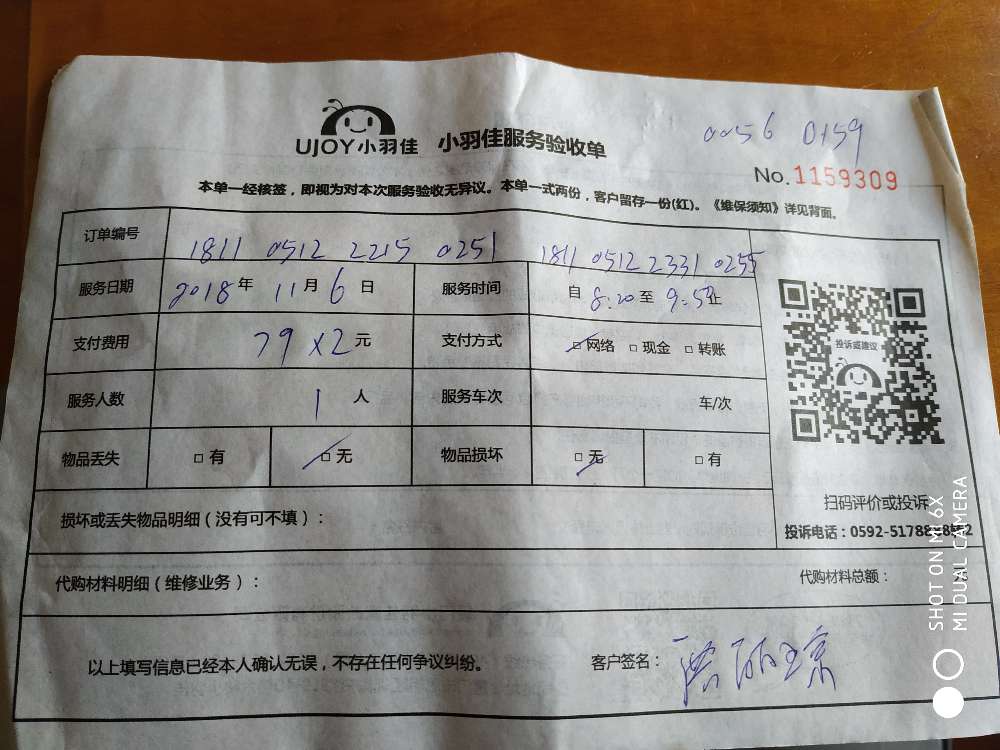 0056 0159
UJOY小羽佳 小羽佳服务验收单
No.1159309
本单一经核签，即视为对本次服务验收无异议。本单一式两份，客户留存一份(红)。《维保须知》详见背面。
订单编号 1811 0512 2215 0251 1811 0512 2331 0255
服务日期 2018年 11月 6日 服务时间 自 8:20至 9:50止
支付费用 79×2元 支付方式 □网络 □现金 □转账
投诉或建议
服务人数 1人 服务车次 车/次
物品丢失 □有 □无 物品损坏 □无 □有
扫码评价或投诉
损坏或丢失物品明细（没有可不填）：
投诉电话：0592-5178888转2
代购材料明细（维修业务）： 代购材料总额： 元
以上填写信息已经本人确认无误，不存在任何争议纠纷。 客户签名：
SHOT ON MI 6X
MI DUAL CAMERA